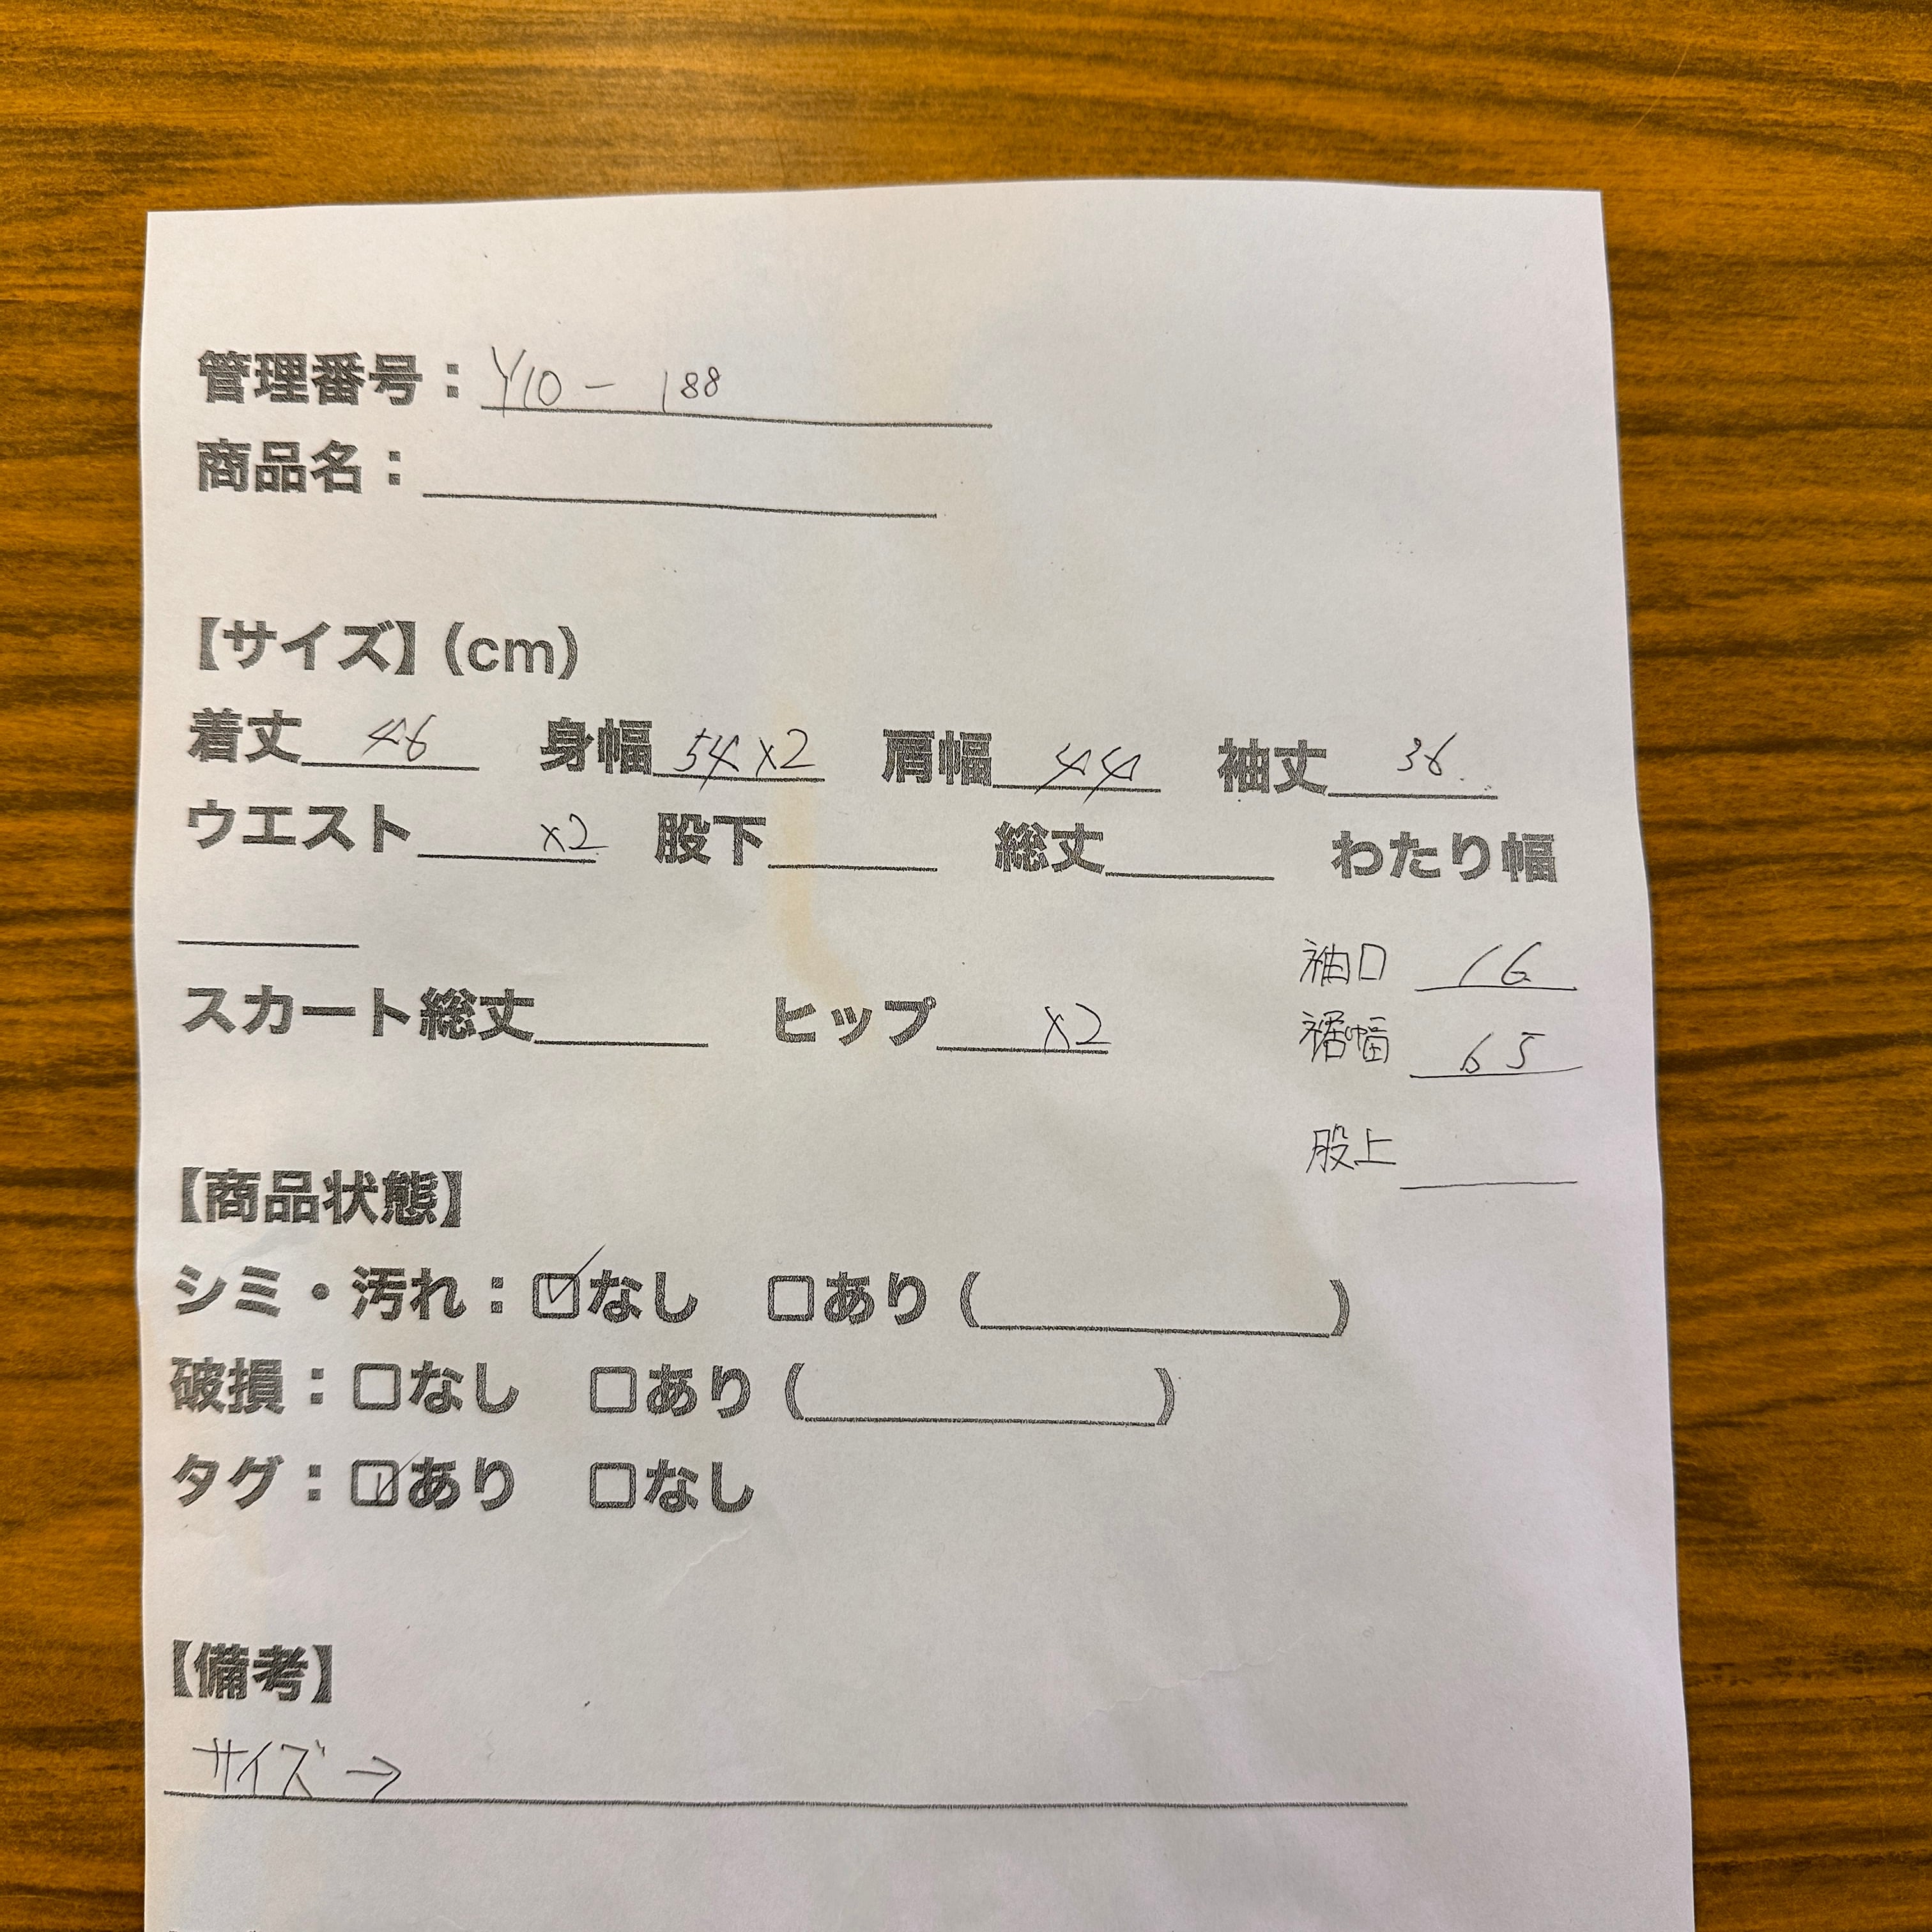 管理番号：Y10 - 188
商品名：
【サイズ】(cm)
着丈 46 身幅 54 x2 肩幅 44 袖丈 36
ウエスト x2 股下 総丈 わたり幅
袖口 16
スカート総丈 ヒップ x2
裾幅 65
股上
【商品状態】
シミ・汚れ：☑なし □あり ( )
破損：□なし □あり ( )
タグ：☑あり □なし
【備考】
サイズ→